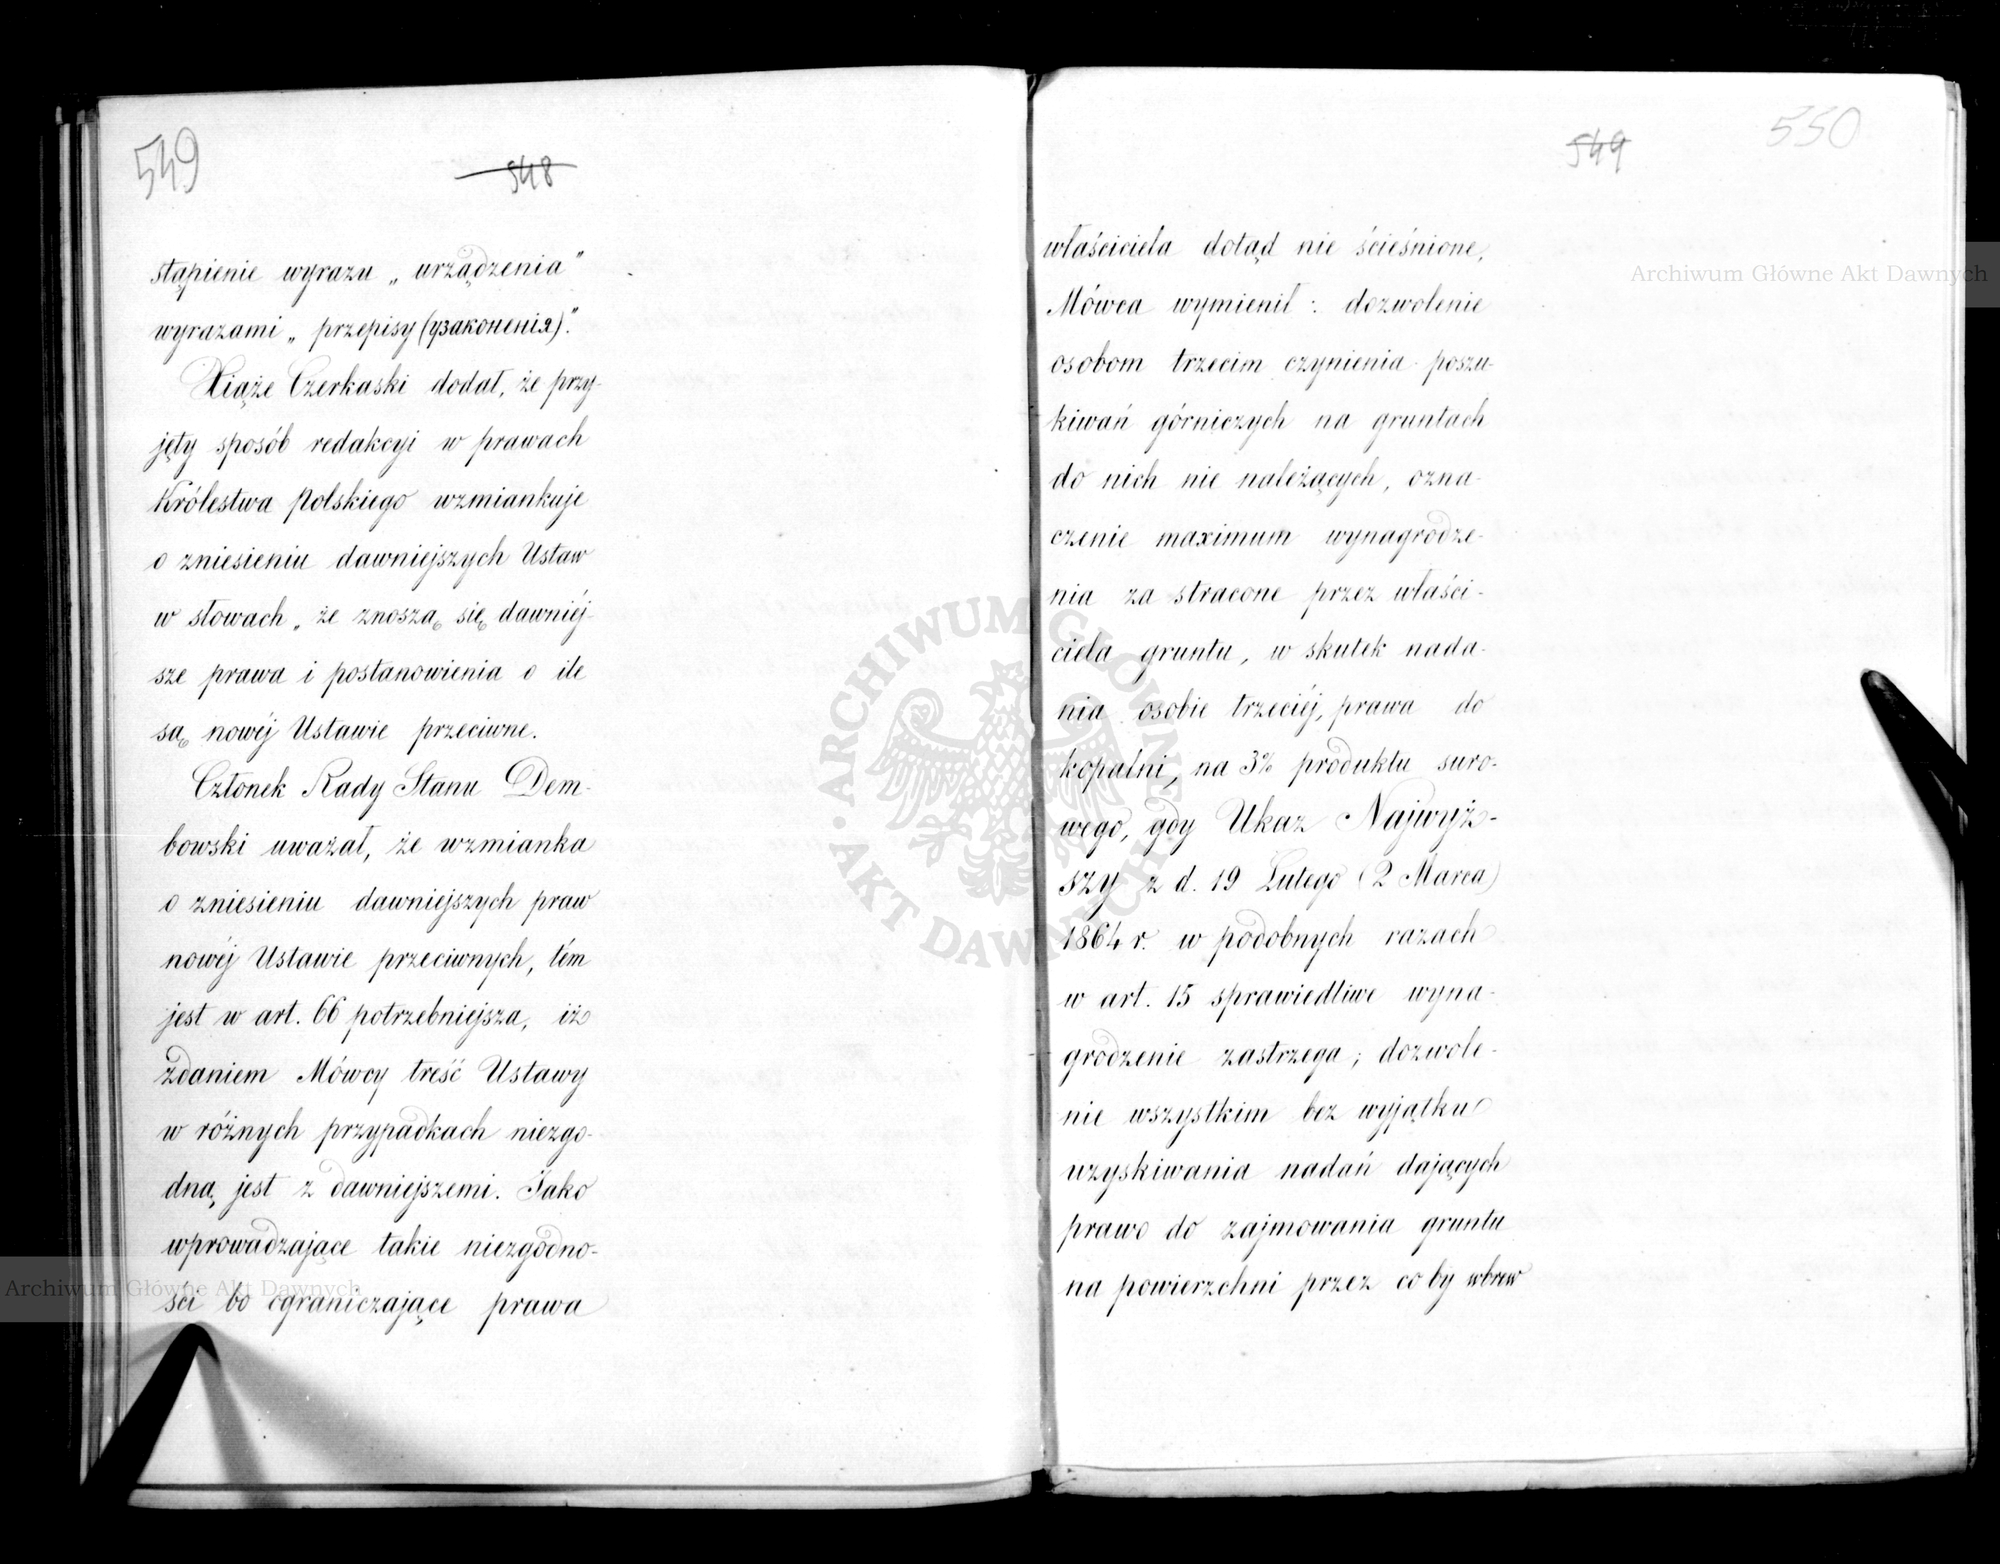 549
548
stąpienie wyrazu „urządzenia”
wyrazami „przepisy (узаконенія)”.
Xiąże Czerkaski dodał, że przy-
jęty sposób redakcyi w prawach
Królestwa Polskiego wzmiankuje
o zniesieniu dawniejszych Ustaw
w słowach „że znoszą się dawniéj-
sze prawa i postanowienia o ile
są nowéj Ustawie przeciwne.
Członek Rady Stanu Dem-
bowski uważał, że wzmianka
o zniesieniu dawniejszych praw
nowéj Ustawie przeciwnych, tém
jest w art. 66 potrzebniejsza, iż
zdaniem Mówcy treść Ustawy
w różnych przypadkach niezgo-
dną jest z dawniejszemi. Jako
wprowadzające takie niezgodno-
ści bo ograniczające prawa
549
550
właściciela dotąd nie ścieśnione,
Mówca wymienił: dozwolenie
osobom trzecim czynienia poszu-
kiwań górniczych na gruntach
do nich nie należących, ozna-
czenie maximum wynagrodze-
nia za stracone przez właści-
ciela gruntu, w skutek nada-
nia osobie trzeciéj, prawa do
kopalni, na 3% produktu suro-
wego, gdy Ukaz Najwyż-
szy z d. 19 Lutego (2 Marca)
1864 r. w podobnych razach
w art. 15 sprawiedliwe wyna-
grodzenie zastrzega; dozwole-
nie wszystkim bez wyjątku
uzyskiwania nadań dających
prawo do zajmowania gruntu
na powierzchni przez co by wbrew
Archiwum Główne Akt Dawnych
Archiwum Główne Akt Dawnych
ARCHIWUM GŁÓWNE AKT DAWNYCH